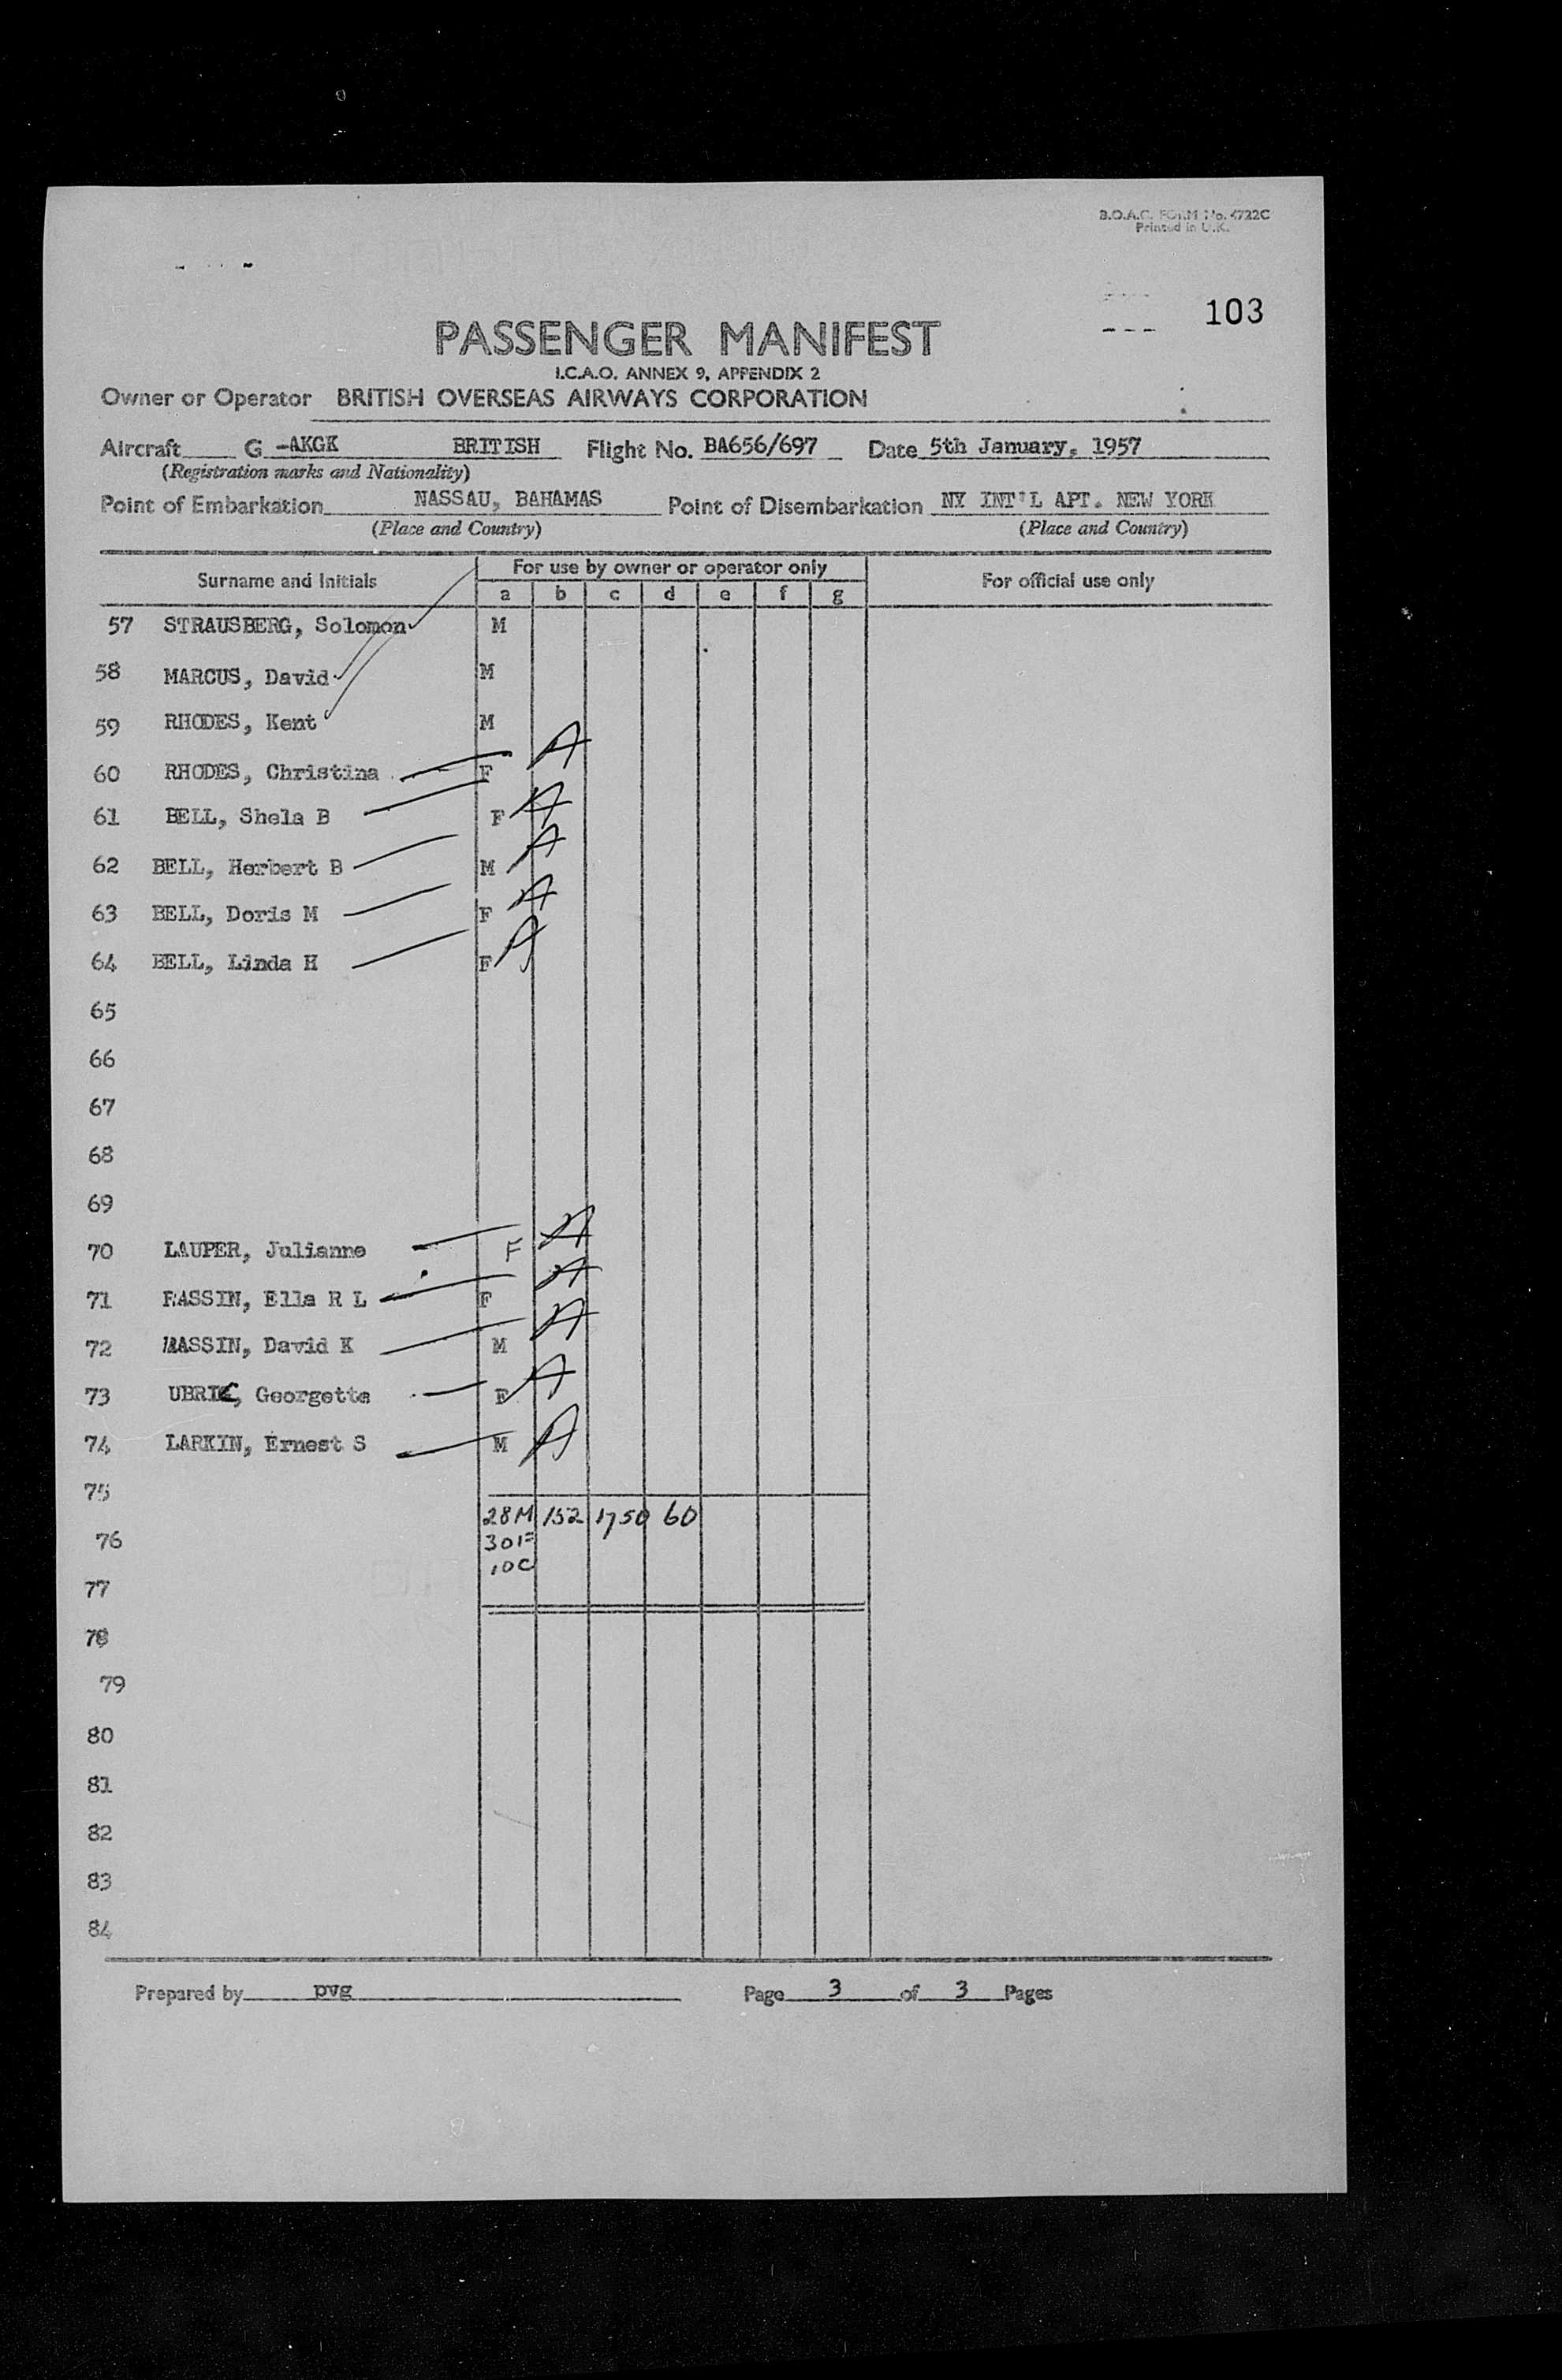 B.O.A.C. FORM No. 4722C
Printed in U.K.
103
PASSENGER MANIFEST
I.C.A.O. ANNEX 9, APPENDIX 2
Owner or Operator BRITISH OVERSEAS AIRWAYS CORPORATION
Aircraft G -AKGK BRITISH Flight No. BA656/697 Date 5th January, 1957
(Registration marks and Nationality)
Point of Embarkation NASSAU, BAHAMAS Point of Disembarkation NY INT'L APT. NEW YORK
(Place and Country) (Place and Country)
Surname and Initials For use by owner or operator only For official use only
a b c d e f g
57 STRAUSBERG, Solomon M
58 MARCUS, David M
59 RHODES, Kent M
60 RHODES, Christina F A
61 BELL, Shela B F A
62 BELL, Herbert B M A
63 BELL, Doris M F A
64 BELL, Linda H F A
65
66
67
68
69
70 LAUPER, Julianne F A
71 RASSIN, Ella R L F A
72 RASSIN, David K M A
73 Georgette F A
74 LARKIN, Ernest S M A
75
28M 152 1750 60
76 30F
10C
77
78
79
80
81
82
83
84
Prepared by pvg Page 3 of 3 Pages